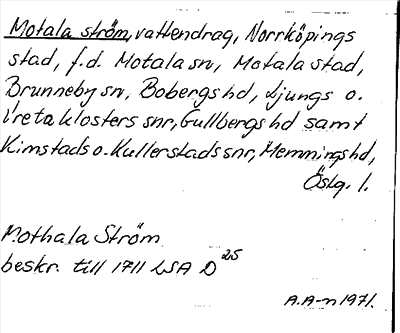 Motala ström, vattendrag, Norrköpings
stad, f.d. Motala sn, Motala stad,
Brunneby sn, Bobergs hd, Ljungs o.
Vreta klosters snr, Gullbergs hd samt
Kimstads o. Kullerstads snr, Memmings hd,
Östg. l.
Mothala Ström
beskr. till 1711 LSA D 25
A.A-n 1971.